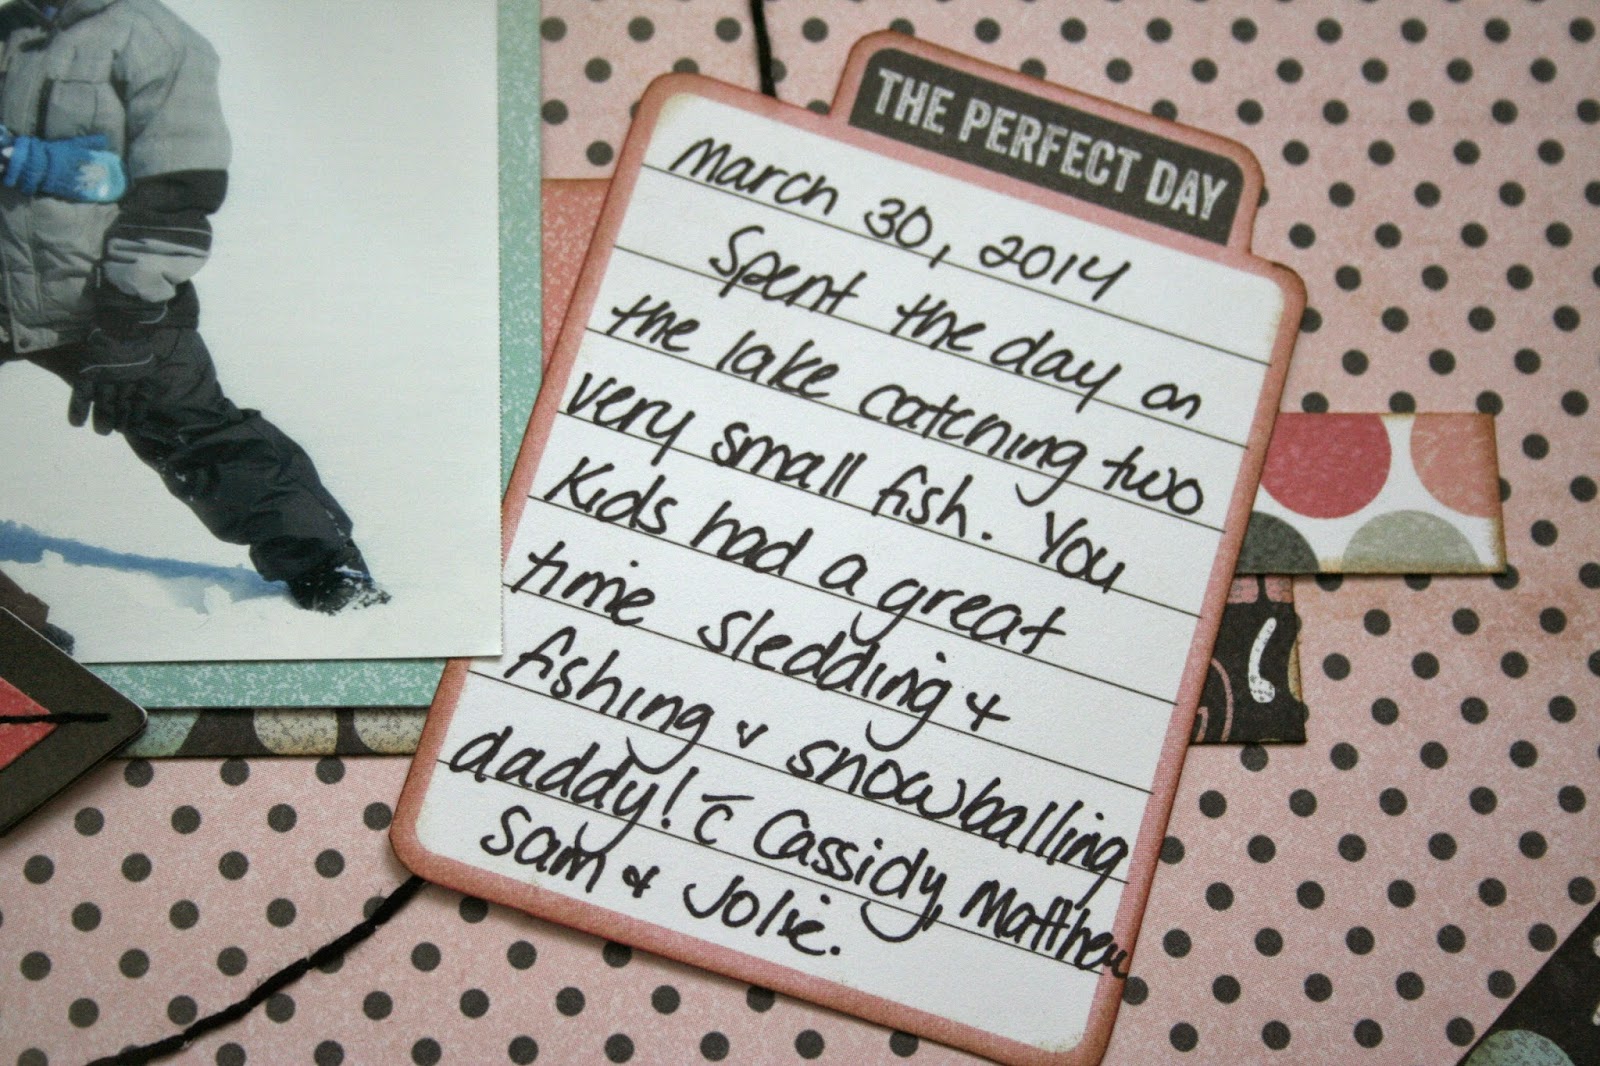 THE PERFECT DAY
March 30, 2014
Spent the day on
the lake catching two
very small fish. You
kids had a great
time sledding &
fishing & snowballing
daddy! c̄ Cassidy, Matthew
Sam & Jolie.